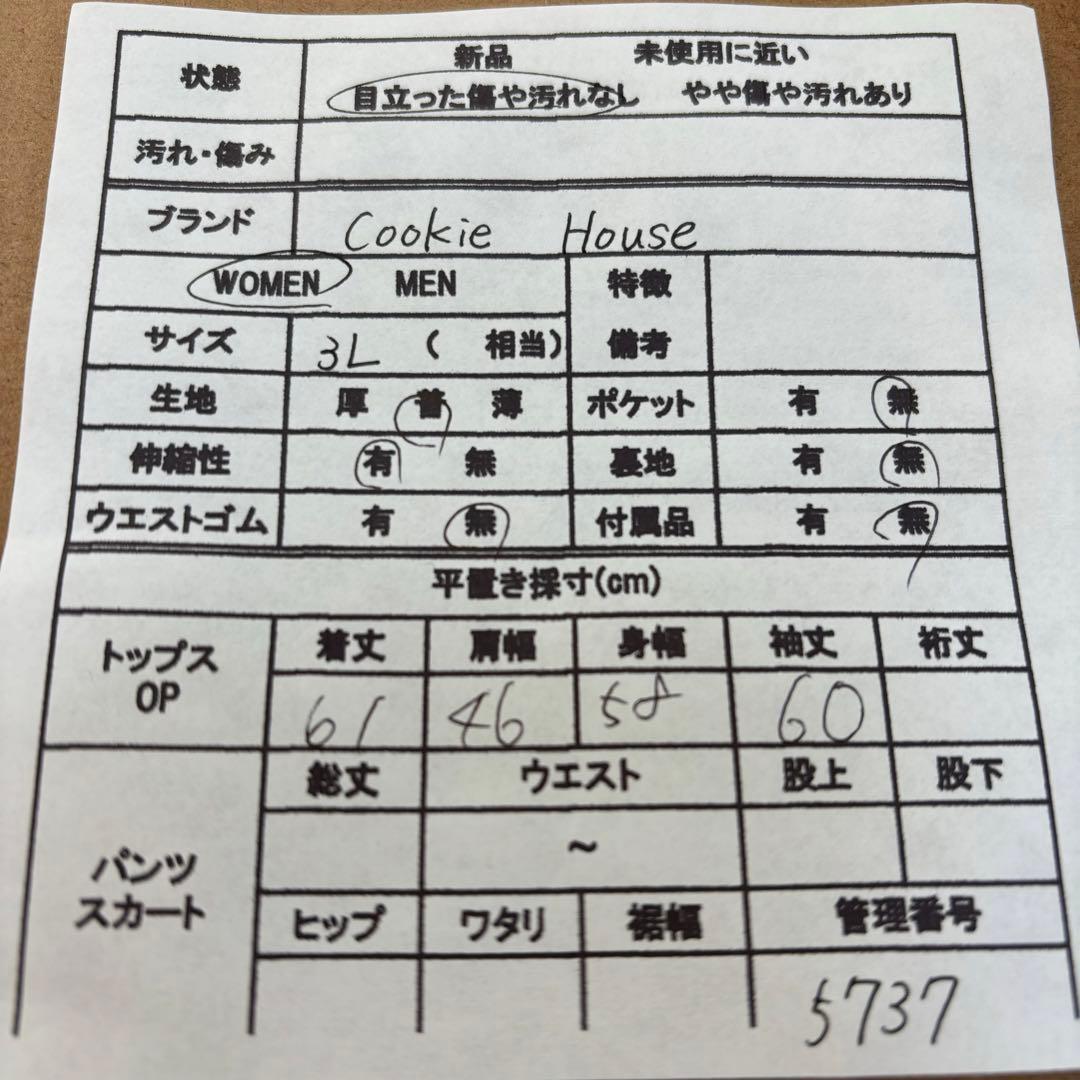 状態 新品 未使用に近い
目立った傷や汚れなし やや傷や汚れあり
汚れ・傷み
ブランド Cookie House
WOMEN MEN 特徴
サイズ 3L ( 相当) 備考
生地 厚 普 薄 ポケット 有 無
伸縮性 有 無 裏地 有 無
ウエストゴム 有 無 付属品 有 無
平置き採寸(cm)
トップス 着丈 肩幅 身幅 袖丈 裄丈
OP 61 46 58 60
総丈 ウエスト 股上 股下
~
パンツ
スカート ヒップ ワタリ 裾幅 管理番号
5737